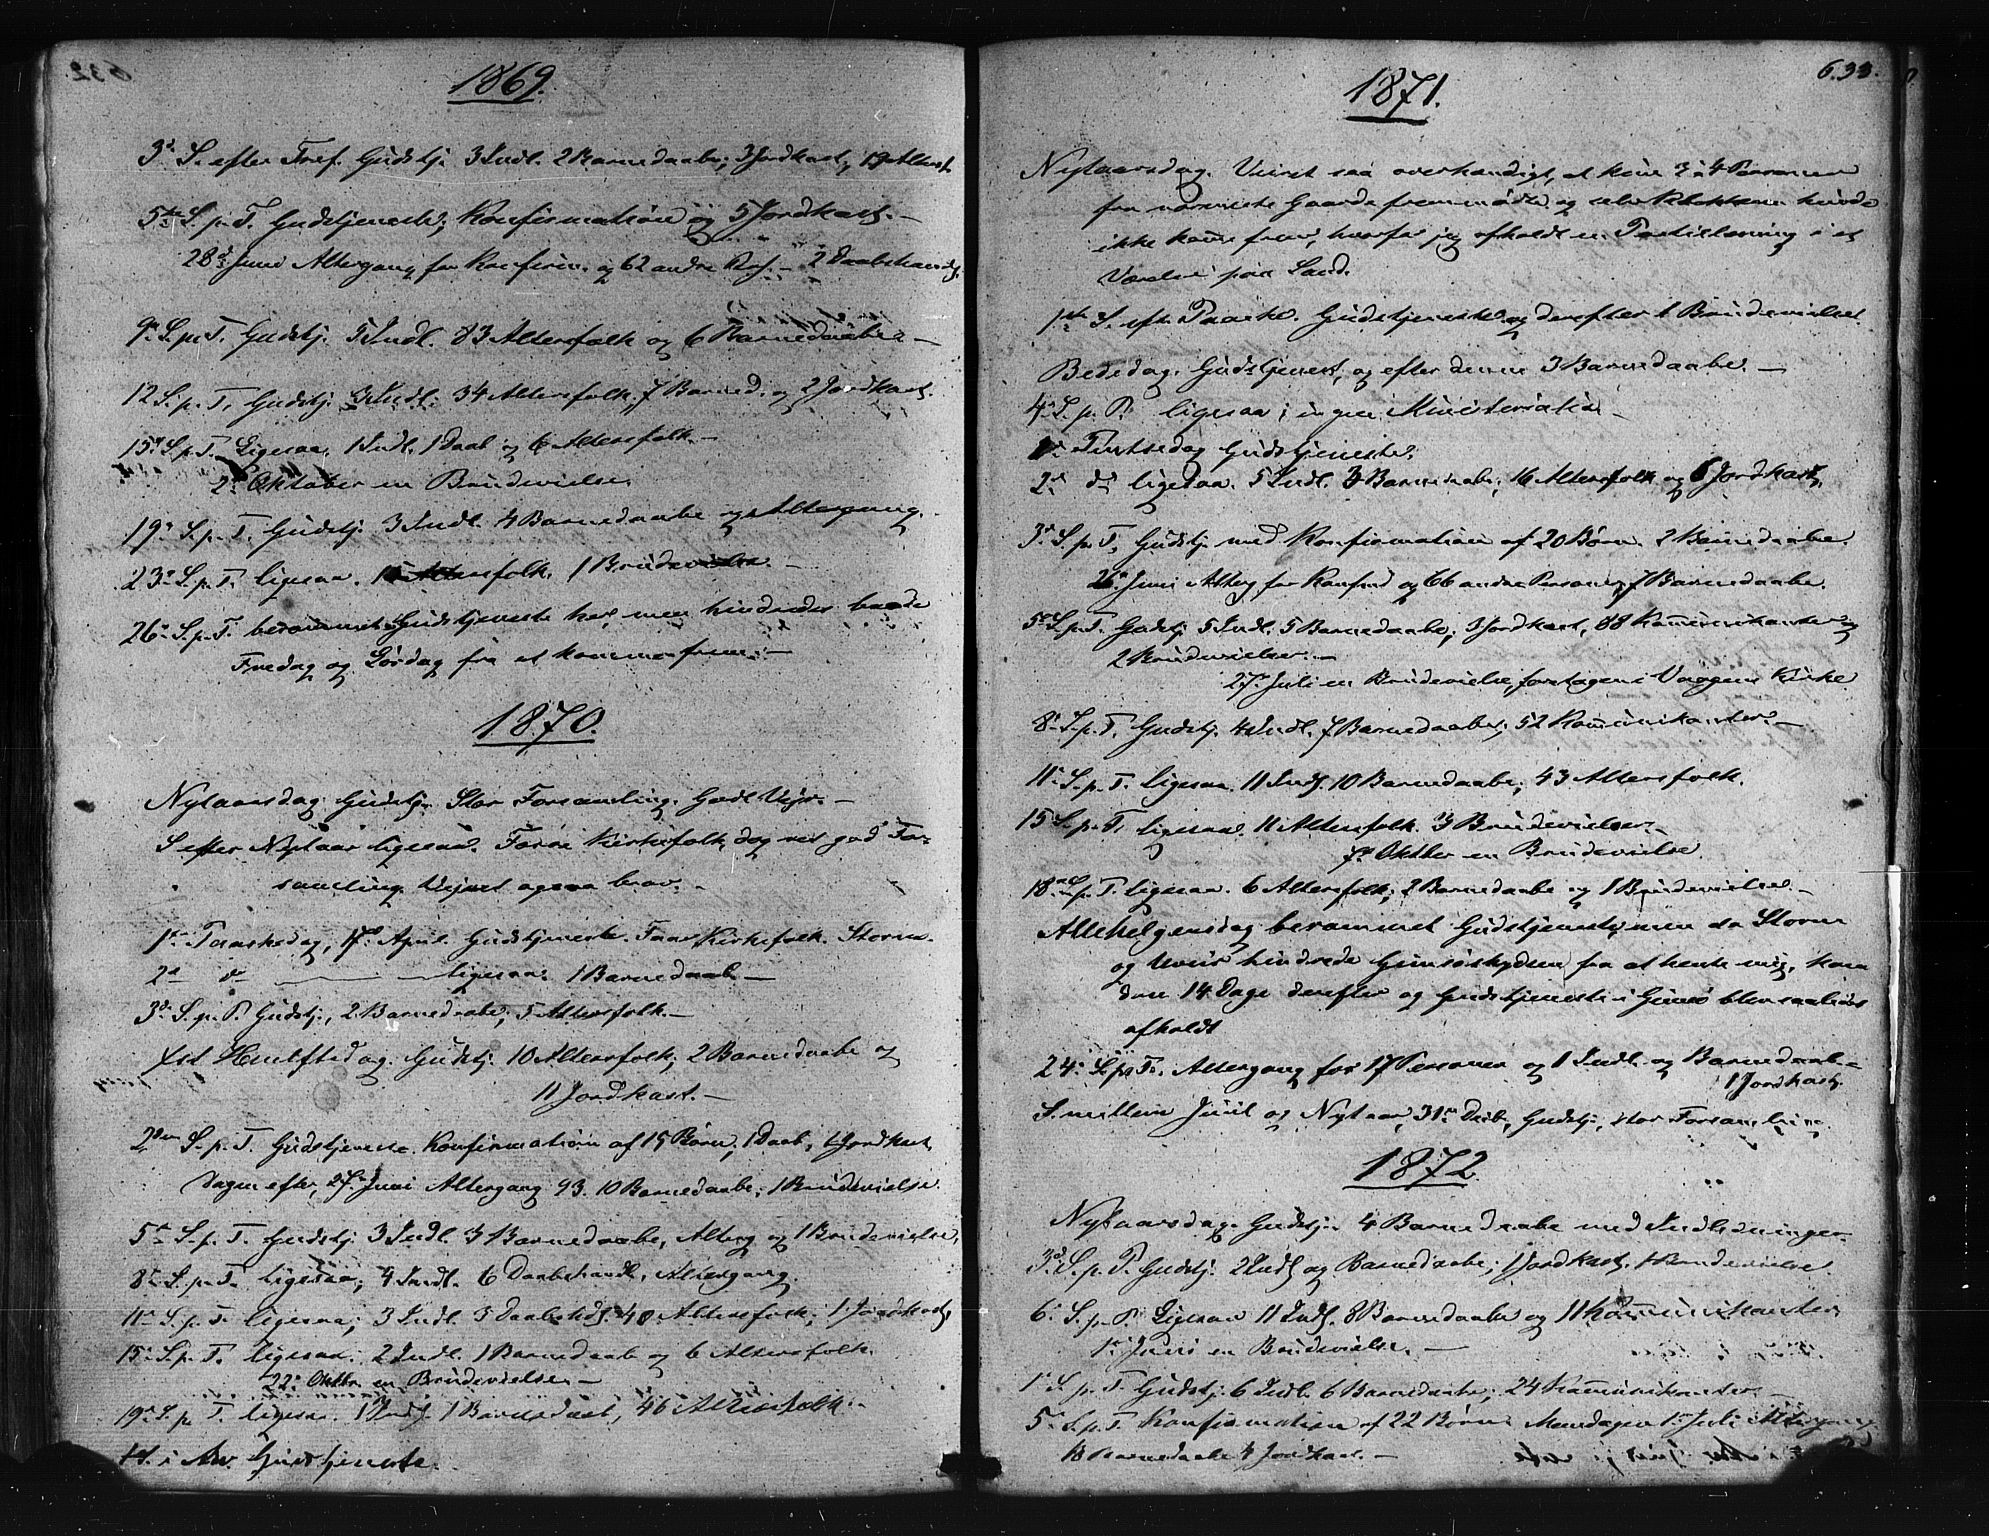 632
1869.
3die S. efter Tref. Gudstj. 3 Indl. 2 Barnedaabe; 3 Jordkast, 19 Altersf.
5te S. p. T. Gudstjeneste; Konfirmation og 5 Jordkast.—
28de Juni Altergang for Konfirm. og 62 andre — 2 Daabshandl.
9. S. p. T. Gudstj. 5 Indl. 83 Altersfolk og 6 Barnedaabe.—
12 S. p. T. Gudstj. 3 Indl. 34 Altersfolk, 7 Barned. og 2 Jordkast.
15. S. p. T. Ligesaa. 1 Indl. 1 Daab og 6 Altersfolk.—
2. Oktober en Brudevielse.
19. S. p. T. Gudstj. 3 Indl. 4 Barnedaabe og Altergang.
23. S. p. T. ligesaa. Altersfolk. 1 Brudevielse.—
26. S. p. T. berammet Gudstjeneste her, men hindredes baade
Fredag og Lørdag fra at komme frem.—
1870.
Nytaarsdag Gudstj. Stor Forsamling. Godt Vejr.—
S. efter Nytaar ligesaa. Færre Kirkefolk, dog ret god For-
samling. Vejret ogsaa brav.—
1ste Paaskedag, 17de April. Gudstjeneste. Faa Kirkefolk. Storm.
2d do — ligesaa. 1 Barnedaab—
3die S. p. P. Gudstj., 2 Barnedaabe, 5 Altersfolk.—
Xsti Himlfsdag. Gudstj. 10 Altersfolk; 2 Barnedaabe og
11 Jordkast.—
2den S. p. T. Gudstjeneste. Konfirmation af 15 Børn, 1 Daab, 1 Jordkast
dagen efter, 27de Juni Altergang 93. 10 Barnedaabe; 1 Brudevielse
5te S. p. T. Gudstj. 3 Indl. 3 Barnedaabe, Alterg. og 1 Brudevielse.
8de S. p. T. ligesaa; 4 Indl. 6 Daabshandl. Altergang.
11te S. p. T. ligesaa; 3 Indl. 3 Daabshdl. 40 Altersfolk; 1 Jordkast.
15. S. p. T. ligesaa. 2 Indl. 1 Barnedaab og 6 Altersfolk.
22. Oktbr. en Brudevielse—
19. S. p. T. ligesaa. 1 Indl. 1 Barnedaab, 46 Altersfolk.—
1st. i Adv. Gudstjeneste.
633.
1871.
Nytaarsdag. Veiret saa overhændigt, at kun 3 à 4 Personer
fra nærmeste Gaarde fremmødte og selv Klokkeren kunde
ikke komme frem, hvorfor jeg afholdt en Postillæsning i et
Værelse paa Sand.
1ste S. eft. Paaske. Gudstjeneste og derefter 1 Brudevielse.
Bededag. Gudstjenest, og efter denne 3 Barnedaabe.—
4. S. p. P. ligesaa; ingen Ministerialia—
1. Pintsedag Gudstjeneste.
2. do ligesaa. 5 Indl. 3 Barnedaabe, 16 Altersfolk og 6 Jordkast.
3. S. p. T. Gudstj. med Konfirmation af 20 Børn. 2 Barnedaabe.
26. Juni Alterg. for Konfmd og 66 andre Personer, 7 Barnedaabe.
5. S. p. T. Gudstj. 5 Indl. 5 Barnedaabe; 3 Jordkast, 88 Kommunikanter og
2 Brudevielser.—
27. Juli en Brudevielse, foretagen i Vaagens Kirke
8. S. p. T. Gudstj. 4 Indl. 7 Barnedaabe; 52 Kommunikanter.—
11. S. p. T. ligesaa. 11 Indl. 10 Barnedaabe; 43 Altersfolk.
15 S. p. T. ligesaa. 11 Altersfolk. 3 Brudevielser.—
7de Oktbr en Brudevielse.
18. S. p. T. ligesaa. 6 Altersfolk; 2 Barnedaabe og 1 Brudevielse.—
Allehelgensdag berammet Gudstjeneste, men da Storm
og Uveir hindrede Gimsøskydsen fra at hente mig, kom
den 14 Dage derefter og Gudstjeneste i Gimsø blev saaledes
afholdt
24. S. p. Tr. Altergang for 17 Personer og 1 Indl. og Barnedaab—
1 Jordkast.
S. mellem Juul og Nytaar, 31te Decb., Gudstj., stor Forsamling.
1872
Nytaarsdag. Gudstj. 4 Barnedaabe med Indledninger.
3d. S. p. P. Gudstj. 2 Indl. og Barnedaabe; 1 Jordkast, 1 Brudevielse.
6. S. p. P. Ligesaa 11 Indl. 8 Barnedaabe og 11 Kommunikanter.
1. Juni en Brudevielse.—
1. S. p. T. Gudstj. 6 Indl. 6 Barnedaabe; 24 Kommunikanter.—
5. S. p. T. Konfirmation af 22 Børn. Mandagen 1. Juli Altergang
Barnedaabe 4 Jordkast.—